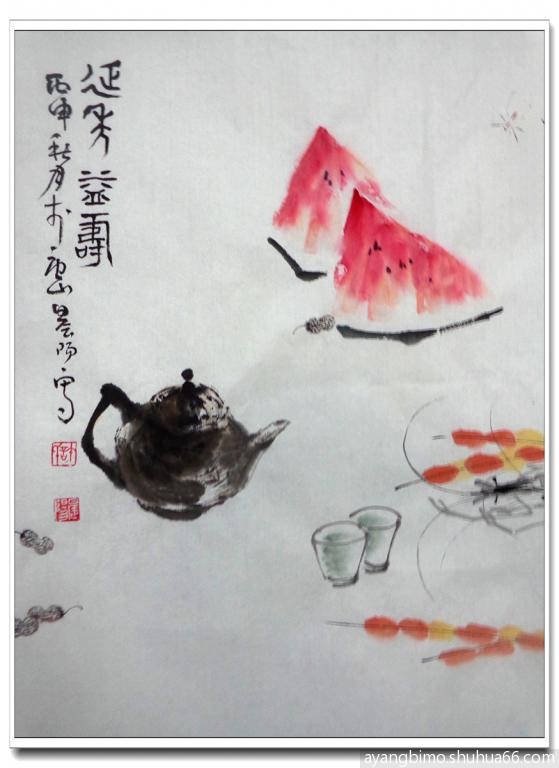 延年益壽
丙申秋月于唐山晨阳写
ayangbimo.shuhua66.com